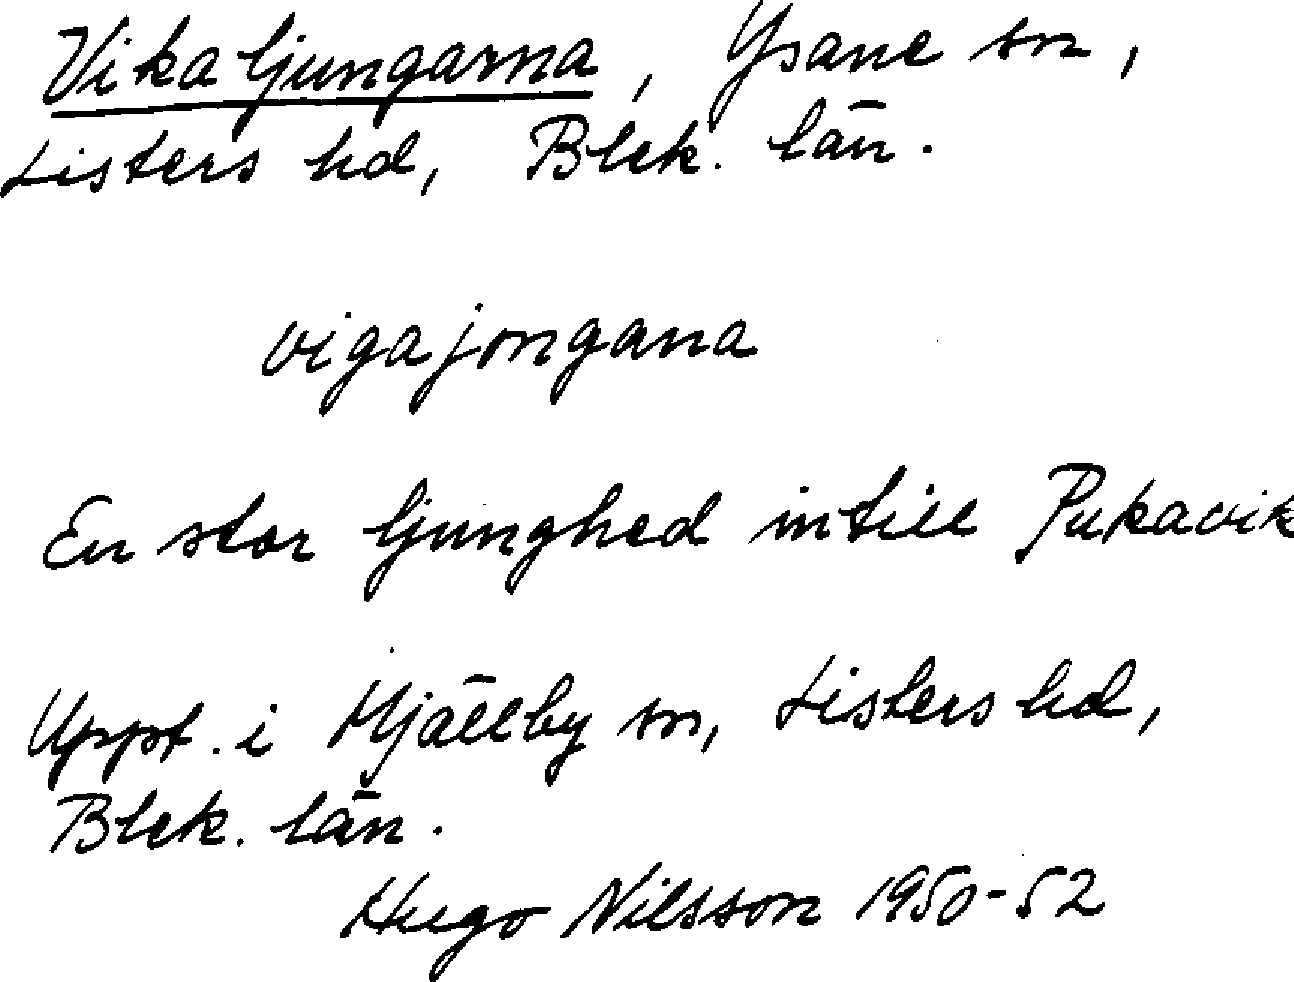 Vikaljungarna, Ysane sn,
Listers hd, Blek. län.
vigajongana
En stor ljunghed intill Pukavik
Uppt. i Mjällby sn, Listers hd,
Blek. län.
Hugo Nilsson 1950-52